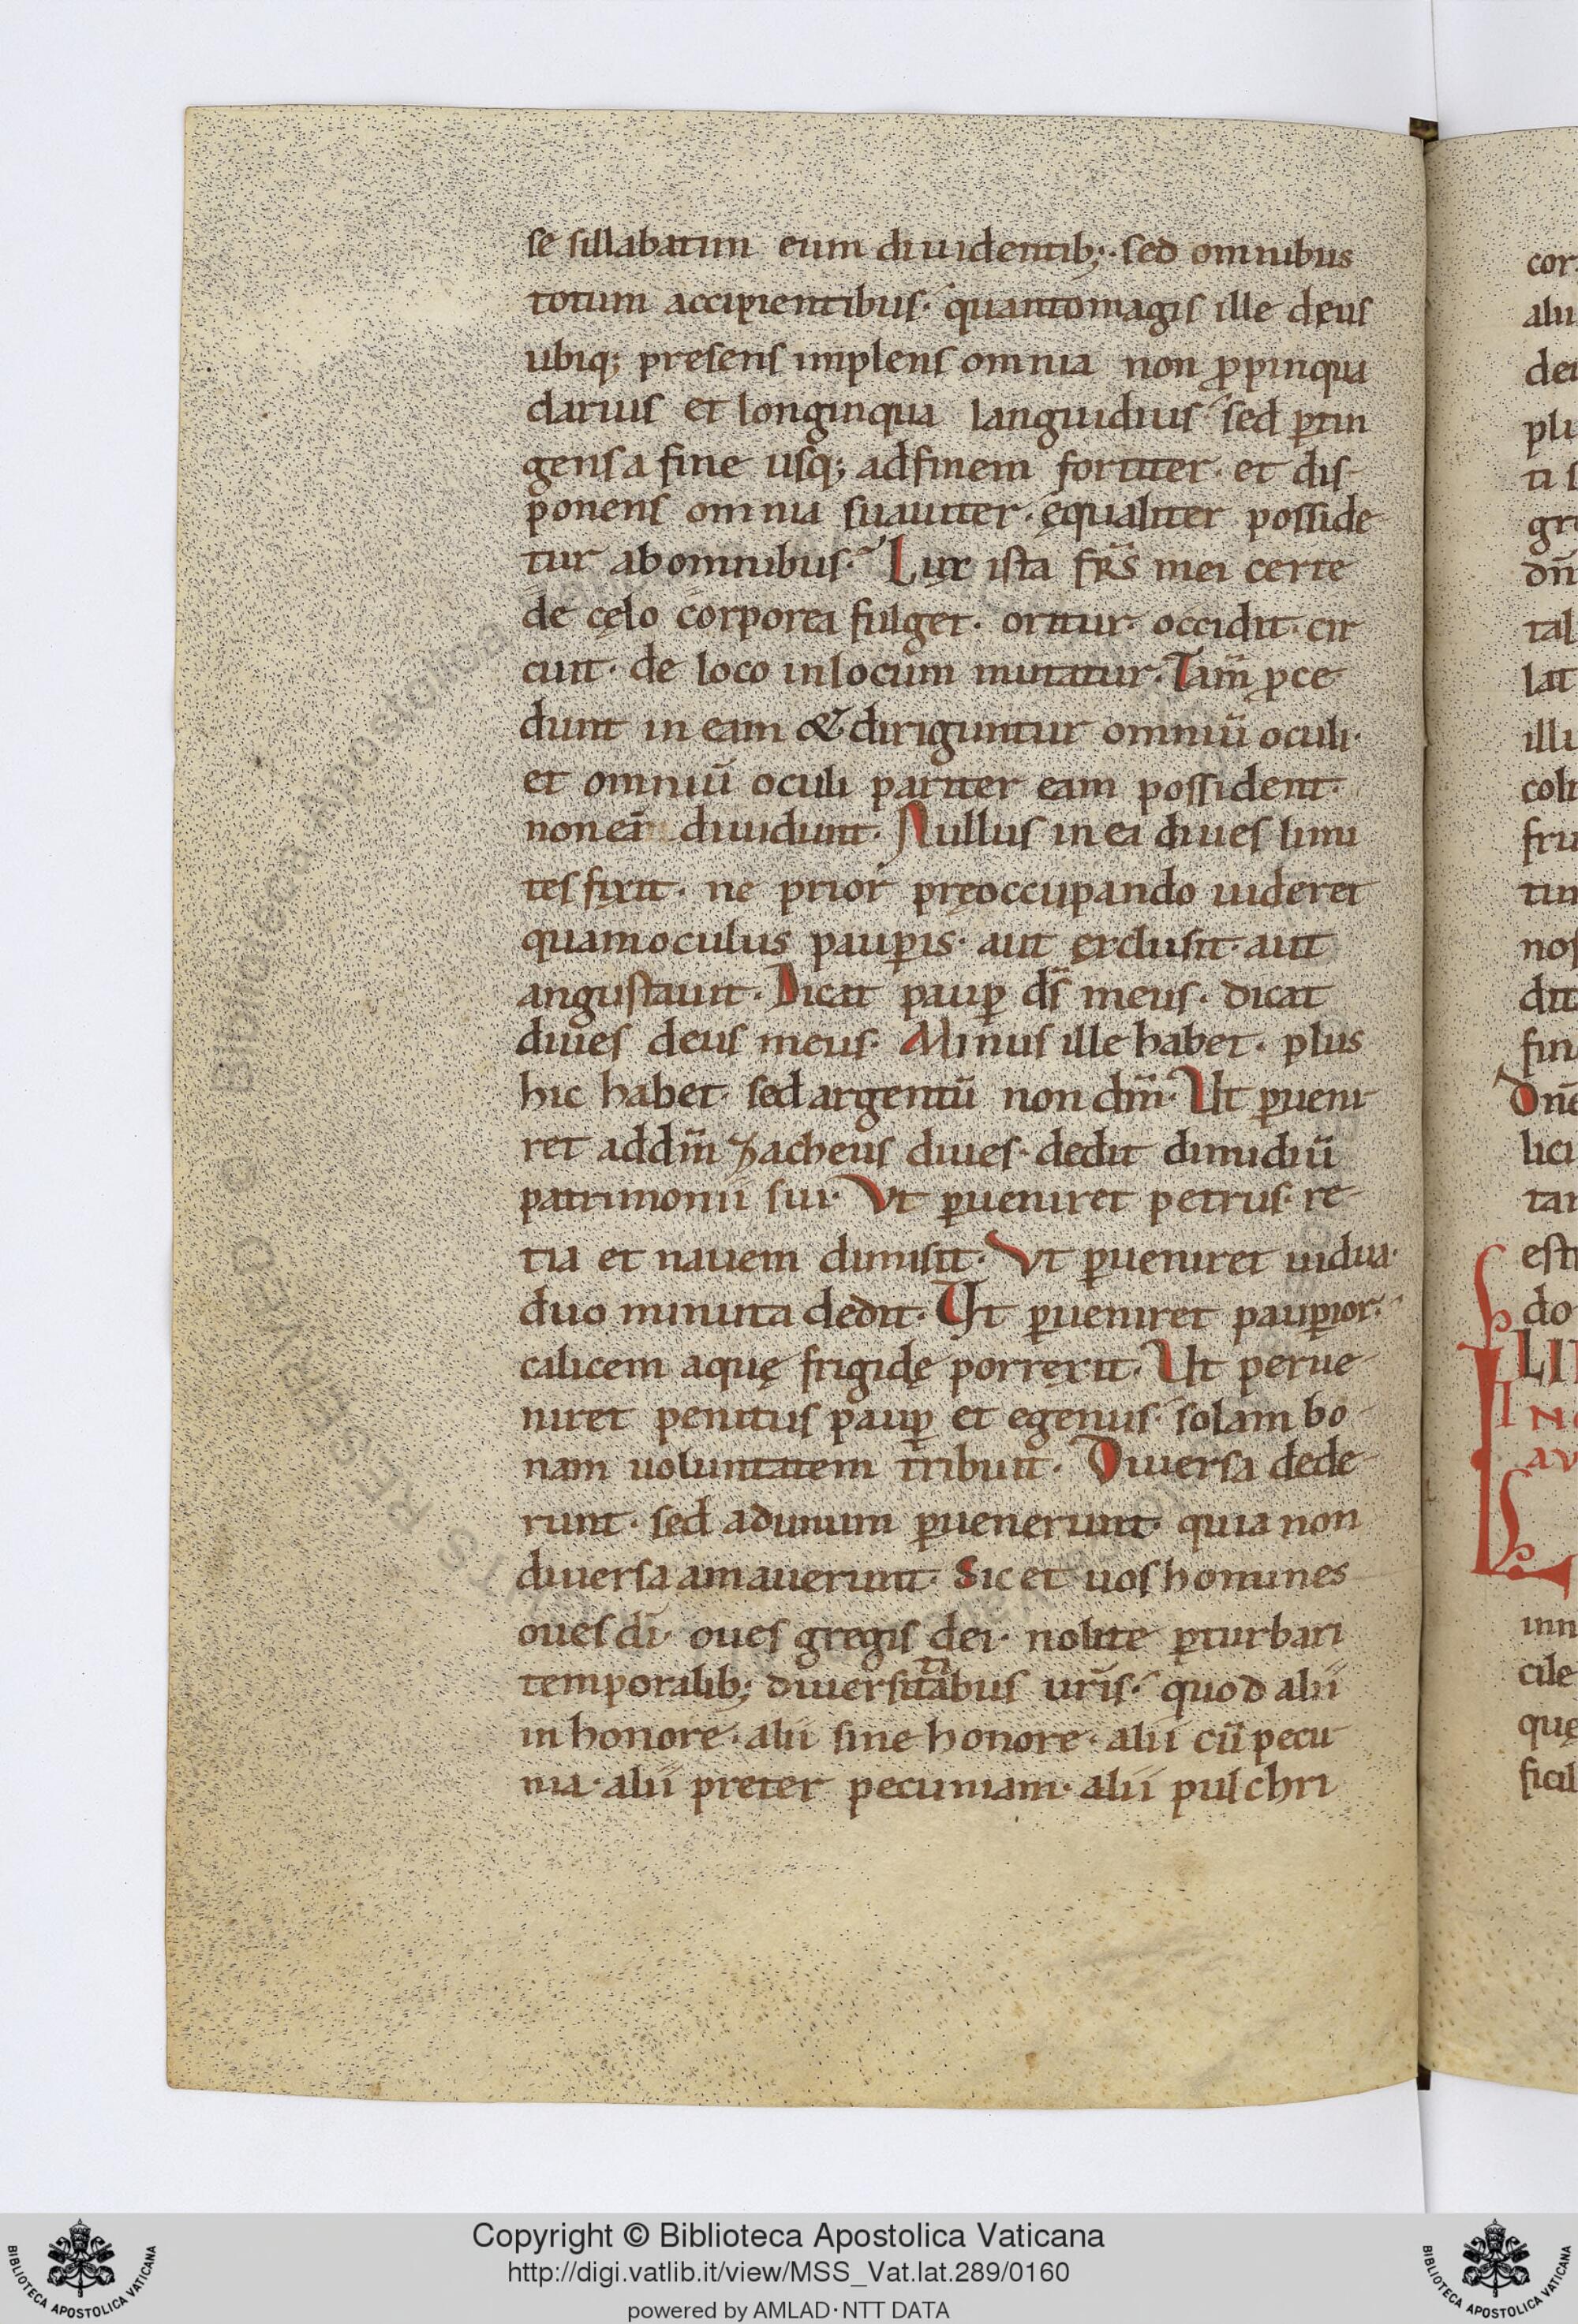 se sillabatim eum diuidentib;· sed omnibus
totum accipientibus· quantomagis ille deus
ubiq; presens implens omnia non ꝓpinqua
clarius et longinqua languidius· sed ꝑtin
gens a fine usq; adfinem fortiter· et dis-
ponens omnia suauiter· ęqualiter posside
tur ab omnibus· Lux ista frs̄ mei certe
de cęlo corporea fulget· oritur· occidit· cir
cuit· de loco inlocum mutatur· Tam̄ ꝓce
dunt in eam & diriguntur omniū oculi·
et omniū oculi pariter eam possident·
non eā diuidunt· Nullus in ea diues limi
tes fixit· ne prior pręoccupando uideret
quamoculus pauꝑis· aut exclusit· aut
angustauit· Dicat pauꝑ ds̄ meus· dicat
diues deus meus· Minus ille habet· plus
hic habet· sed argentū non dm̄· Ut ꝑueni
ret addm̄ zacheus diues· dedit dimidiū
patrimonii sui· Vt ꝑueniret petrus· re-
tia et nauem dimisit· Vt ꝑueniret uidua·
duo minuta dedit· Ut ꝑueniret pauꝑior·
calicem aquę frigidę porrexit· Ut perue-
niret penitus pauꝑ et egenus· solam bo-
nam uoluntatem tribuit· Diuersa dede-
runt· sed adunum ꝑuenerunt· quia non
diuersa amauerunt· Sic et uos homines
oues di· oues gregis dei· nolite ꝑturbari
ti
temporalib; diuersitabus uris̄· quod alii
in honore· alii sine honore· alii cū pecu
nia· alii preter pecuniam· alii pulchri
cor
alu
dei
plu
ti s
gre
dn̄
tal
lat
illu
coli
fru
tim
nos
dit
fin
Dn̄e
lici
tan
esti
do
LIB
IN
AV
inn
cile
quę
ficil
© Biblioteca Apostolica Vaticana
RIGHTS RESERVED
Copyright © Biblioteca Apostolica Vaticana
http://digi.vatlib.it/view/MSS_Vat.lat.289/0160
powered by AMLAD·NTT DATA
BIBLIOTECA APOSTOLICA VATICANA
BIBLIOTECA APOSTOLICA VATICANA